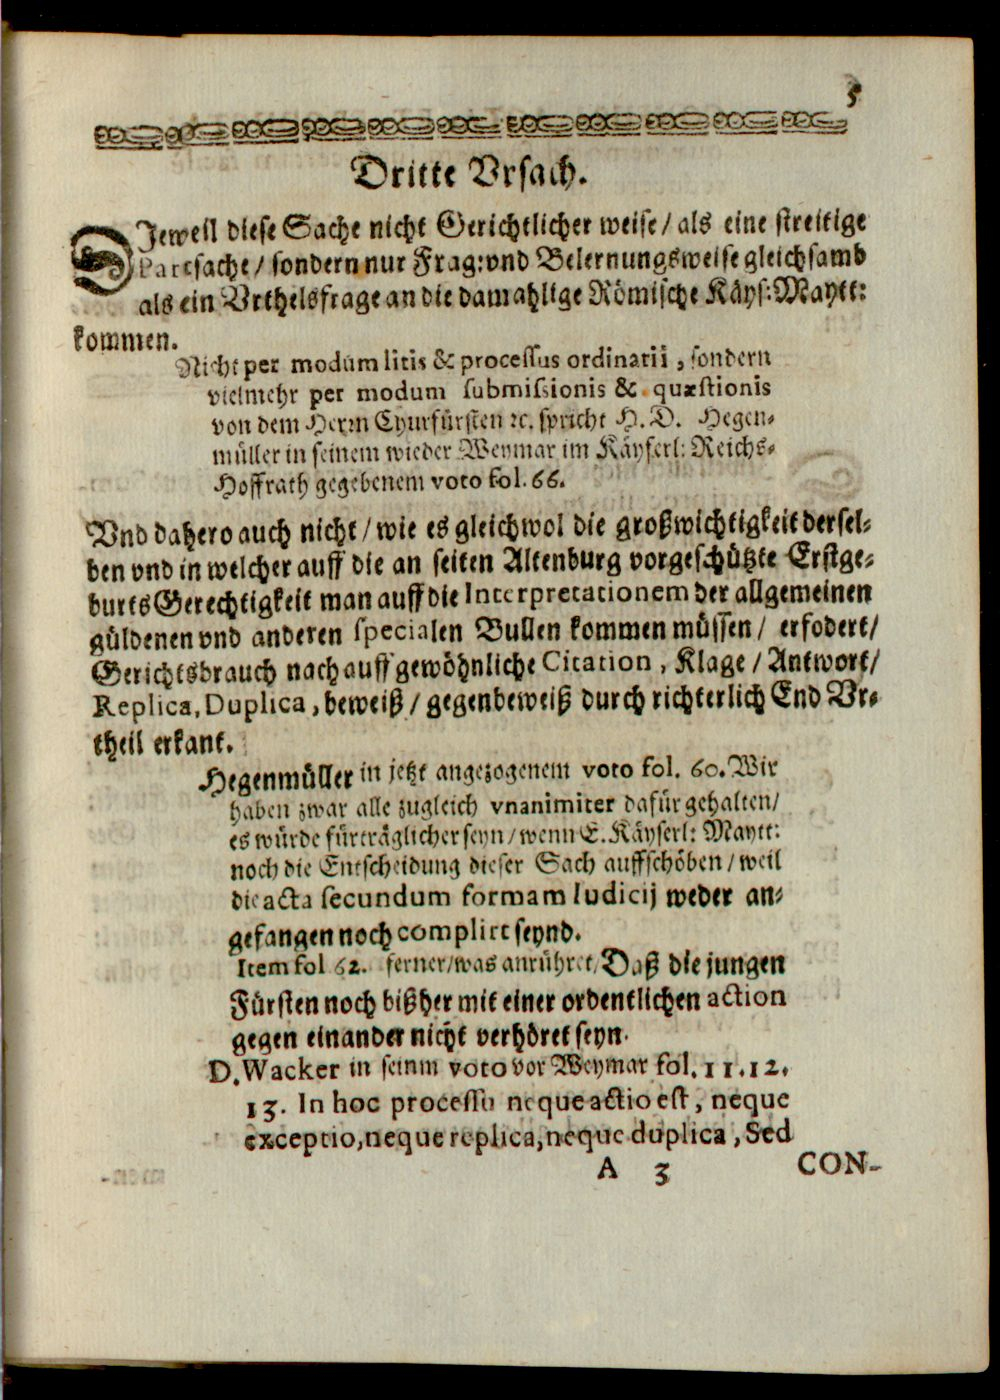 5
Dritte Vrsach.
DJeweil diese Sache nicht Gerichtlicher weise / als eine streitige
Partsache / sondern nur Frag: vnd Belernungsweise gleichsamb
als ein Vrthelsfrage an die damahlige Römische Käys: Maytt:
kommen.
Nicht per modum litis & processus ordinarii, sondern
vielmehr per modum submissionis & quæstionis
von dem Herrn Churfürsten ꝛc. spricht H. D. Hegen-
müller in seinem wieder Weymar im Käyserl: Reichs-
Hoffrath gegebenem voto fol. 66.
Vnd dahero auch nicht / wie es gleichwol die großwichtigkeit dersel-
ben vnd in welcher auff die an seiten Altenburg vorgeschützte Erstge-
burts Gerechtigkeit man auff die Interpretationem der allgemeinen
güldenen vnd anderen specialen Bullen kommen müssen / erfodert /
Gerichtsbrauch nach auff gewöhnliche Citation, Klage / Antwort /
Replica, Duplica, beweiß / gegenbeweiß durch richterlich End Vr-
theil erkant.
Hegenmüller in jetzt angezogenem voto fol. 60. Wir
haben zwar alle zugleich vnanimiter dafür gehalten /
es würde fürträglicher seyn / wenn E. Käyserl: Maytt:
noch die Entscheidung dieser Sach auffschöben / weil
die acta secundum formam Iudicij weder an-
gefangen noch complirt seynd.
Item fol 62. ferner / was anrühret / Daß die jungen
Fürsten noch bißher mit einer ordentlichen action
gegen einander nicht verhöret seyn.
D. Wacker in seinm voto vor Weymar fol. 11. 12.
13. In hoc processu neque actio est, neque
exceptio, neque replica, neque duplica, Sed
A 3 CON-